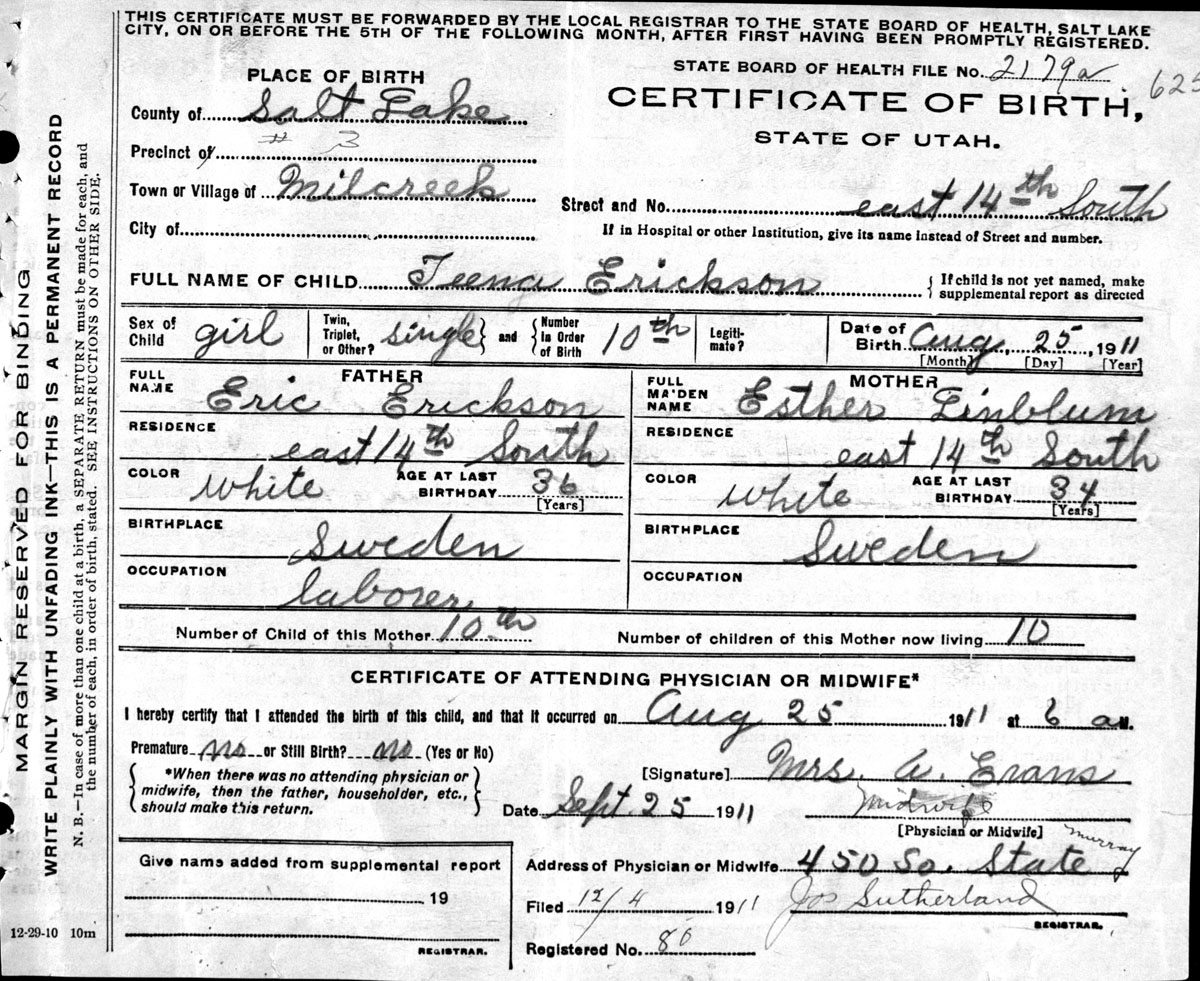 THIS CERTIFICATE MUST BE FORWARDED BY THE LOCAL REGISTRAR TO THE STATE BOARD OF HEALTH, SALT LAKE
CITY, ON OR BEFORE THE 5TH OF THE FOLLOWING MONTH, AFTER FIRST HAVING BEEN PROMPTLY REGISTERED.
STATE BOARD OF HEALTH FILE No. 2179a 625
PLACE OF BIRTH
CERTIFICATE OF BIRTH,
STATE OF UTAH.
County of Salt Lake
Precinct of # 3
Town or Village of Milcreek
Street and No. east 14th South
City of
If in Hospital or other Institution, give its name instead of Street and number.
FULL NAME OF CHILD Teena Erickson
{ If child is not yet named, make
supplemental report as directed
Sex of Child girl
Twin, Triplet, or Other? single } and { Number In Order of Birth 10th
Legiti-mate?
Date of Birth Aug 25, 1911
[Month] [Day] [Year]
FATHER
FULL NAME Eric Erickson
RESIDENCE east 14th South
COLOR White AGE AT LAST BIRTHDAY 36
[Years]
BIRTHPLACE Sweden
OCCUPATION laborer
MOTHER
FULL MAIDEN NAME Esther Linblum
RESIDENCE east 14th South
COLOR White AGE AT LAST BIRTHDAY 34
[Years]
BIRTHPLACE Sweden
OCCUPATION
Number of Child of this Mother 10th Number of children of this Mother now living 10
CERTIFICATE OF ATTENDING PHYSICIAN OR MIDWIFE*
I hereby certify that I attended the birth of this child, and that it occurred on Aug 25 1911 at 6 a M.
Premature no or Still Birth? no (Yes or No)
{ *When there was no attending physician or
midwife, then the father, householder, etc.,
should make this return. }
[Signature] Mrs. A. Evans
Date Sept 25 1911 Midwife
[Physician or Midwife]
Address of Physician or Midwife 450 So. State Murray
Filed 12/4 1911 Jos Sutherland
REGISTRAR.
Registered No. 80
Give name added from supplemental report
19
REGISTRAR.
12-29-10 10m
MARGIN RESERVED FOR BINDING
WRITE PLAINLY WITH UNFADING INK—THIS IS A PERMANENT RECORD
N. B.—In case of more than one child at a birth, a SEPARATE RETURN must be made for each, and
the number of each, in order of birth, stated. SEE INSTRUCTIONS ON OTHER SIDE.